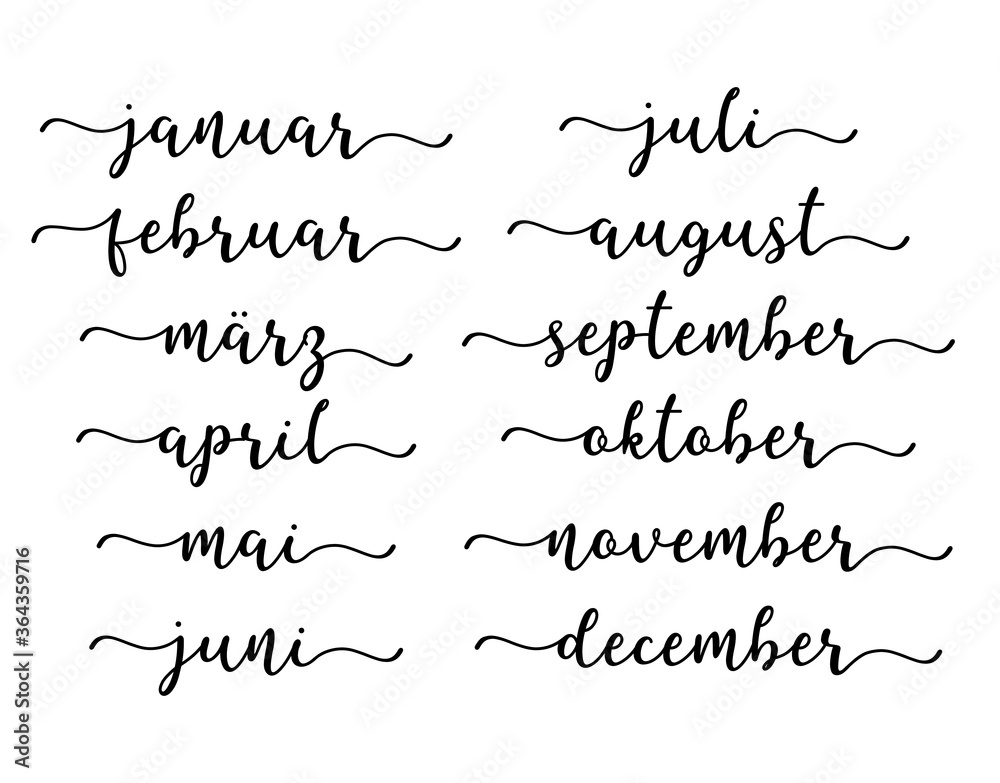 januar
februar
märz
april
mai
juni
juli
august
september
oktober
november
december
Adobe Stock | #364359716